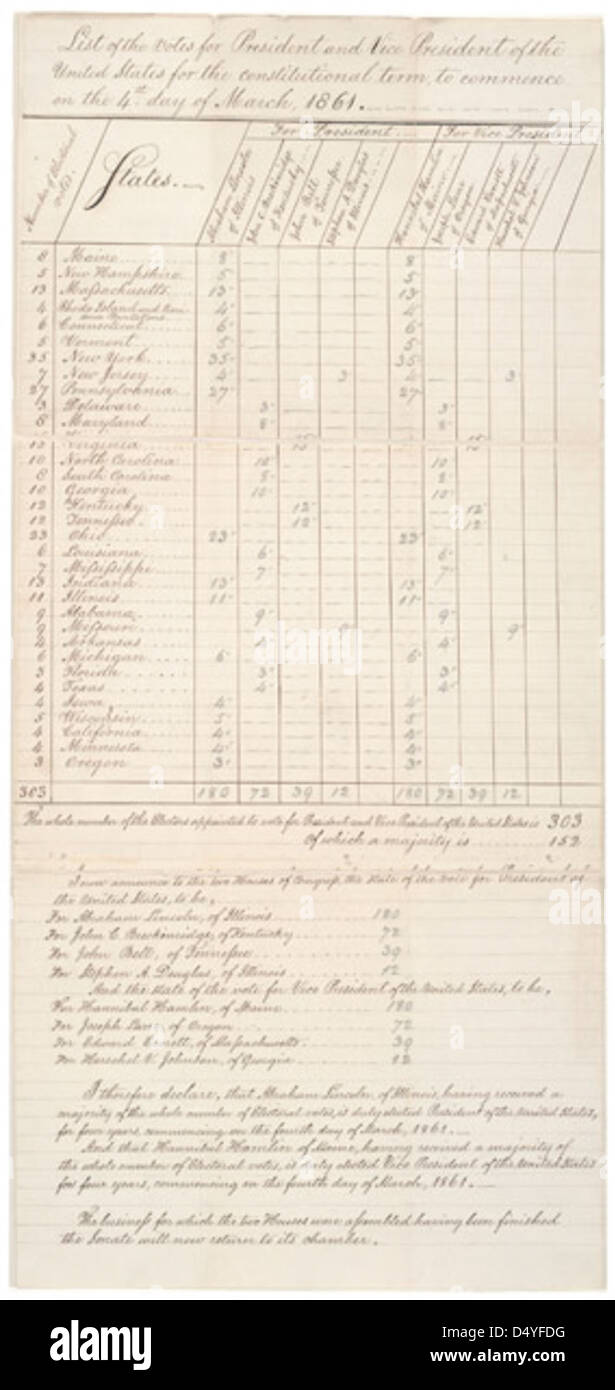 List of the votes for President and Vice President of the
United States for the constitutional term, to commence
on the 4th day of March, 1861.
For President For Vice President
Number of Electoral votes. States. Abraham Lincoln of Illinois John C. Breckinridge of Kentucky John Bell of Tennessee Stephen A. Douglas of Illinois Hannibal Hamlin of Maine Joseph Lane of Oregon Edward Everett of Massachusetts Herschel V. Johnson of Georgia
8 Maine 8 8
5 New Hampshire 5 5
13 Massachusetts 13 13
4 Rhode Island and 4 4
Plantations
6 Connecticut 6 6
5 Vermont 5 5
35 New York 35 35
7 New Jersey 4 3 4 3
27 Pennsylvania 27 27
3 Delaware 3 3
8 Maryland 8 8
15 Virginia 15 15
10 North Carolina 10 10
8 South Carolina 8 8
10 Georgia 10 10
12 Kentucky 12 12
12 Tennessee 12 12
23 Ohio 23 23
6 Louisiana 6 6
7 Mississippi 7 7
13 Indiana 13 13
11 Illinois 11 11
9 Alabama 9 9
9 Missouri 9 9
4 Arkansas 4 4
6 Michigan 6 6
3 Florida 3 3
4 Texas 4 4
4 Iowa 4 4
5 Wisconsin 5 5
4 California 4 4
4 Minnesota 4 4
3 Oregon 3 3
303 180 72 39 12 180 72 39 12
The whole number of the Electors appointed to vote for President and Vice President of the United States is 303
Of which a majority is 152
I now announce to the two Houses of Congress, the state of the vote for President of
the United States, to be,
For Abraham Lincoln, of Illinois 180
For John C. Breckinridge, of Kentucky 72
For John Bell, of Tennessee 39
For Stephen A. Douglas, of Illinois 12
And the state of the vote for Vice President of the United States, to be,
For Hannibal Hamlin, of Maine 180
For Joseph Lane, of Oregon 72
For Edward Everett, of Massachusetts 39
For Herschel V. Johnson, of Georgia 12
I therefore declare, that Abraham Lincoln, of Illinois, having received a
majority of the whole number of Electoral votes, is duly elected President of the United States,
for four years, commencing on the fourth day of March, 1861.
And that Hannibal Hamlin of Maine, having received a majority of
the whole number of Electoral votes, is duly elected Vice President of the United States
for four years, commencing on the fourth day of March, 1861.
The business for which the two Houses were assembled having been finished
the Senate will now return to its chamber.
alamy
Image ID: D4YFDG
www.alamy.com